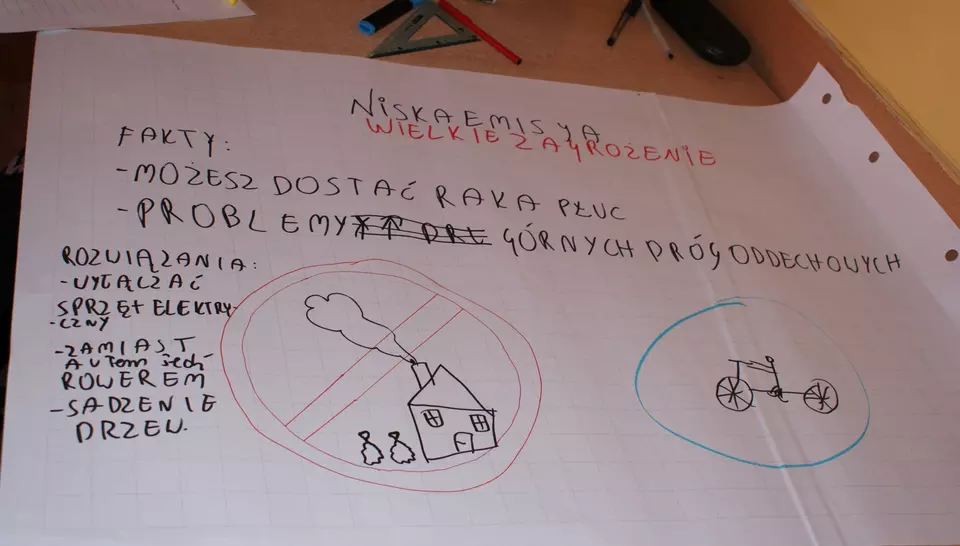 NISKA EMISYA
WIELKIE ZAGROŻENIE
FAKTY:
-MOŻESZ DOSTAĆ RAKA PŁUC
-PROBLEMY GÓRNYCH DRÓG ODDECHOWYCH
ROZWIĄZANIA:
-WYŁĄCZAĆ
SPRZĘT ELEKTRY-
-CZNY
-ZAMIAST
AUTEM JECH-
ROWEREM
-SADZENIE
DRZEW.